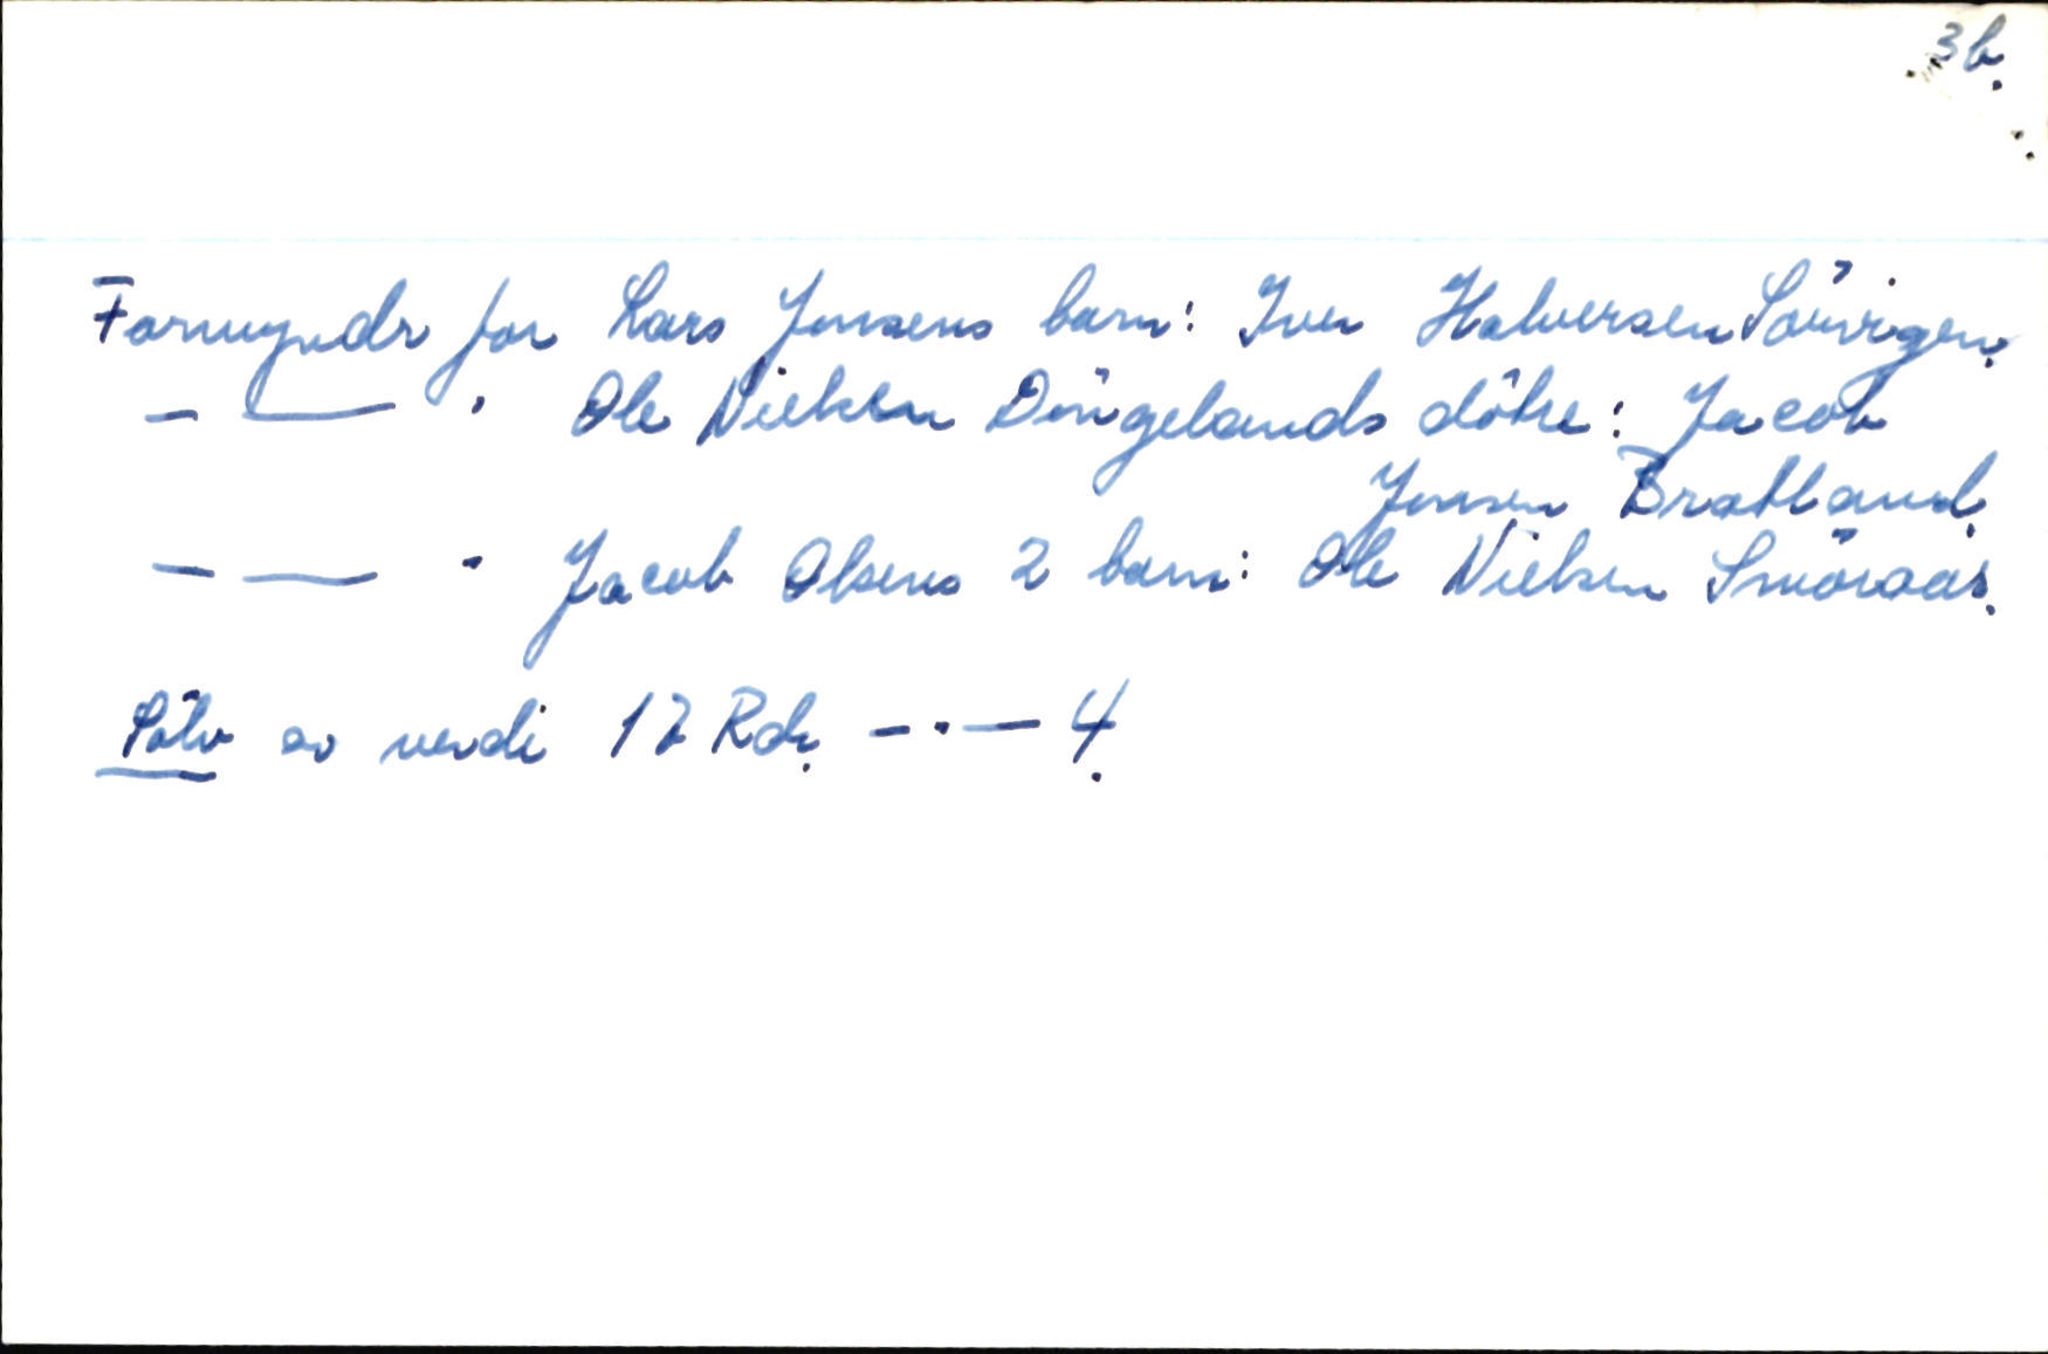 3b.
Formyndr for Lars Jonsens barn: Iver Halversen Sövigen.
— — " Ole Nielsen Dingelands döttre: Jacob
Jonsen Brattland.
— — " Jacob Olsens 2 barn: Ole Nielsen Smöraas.
Sölv av verdi 12 Rdr. — " — 4.